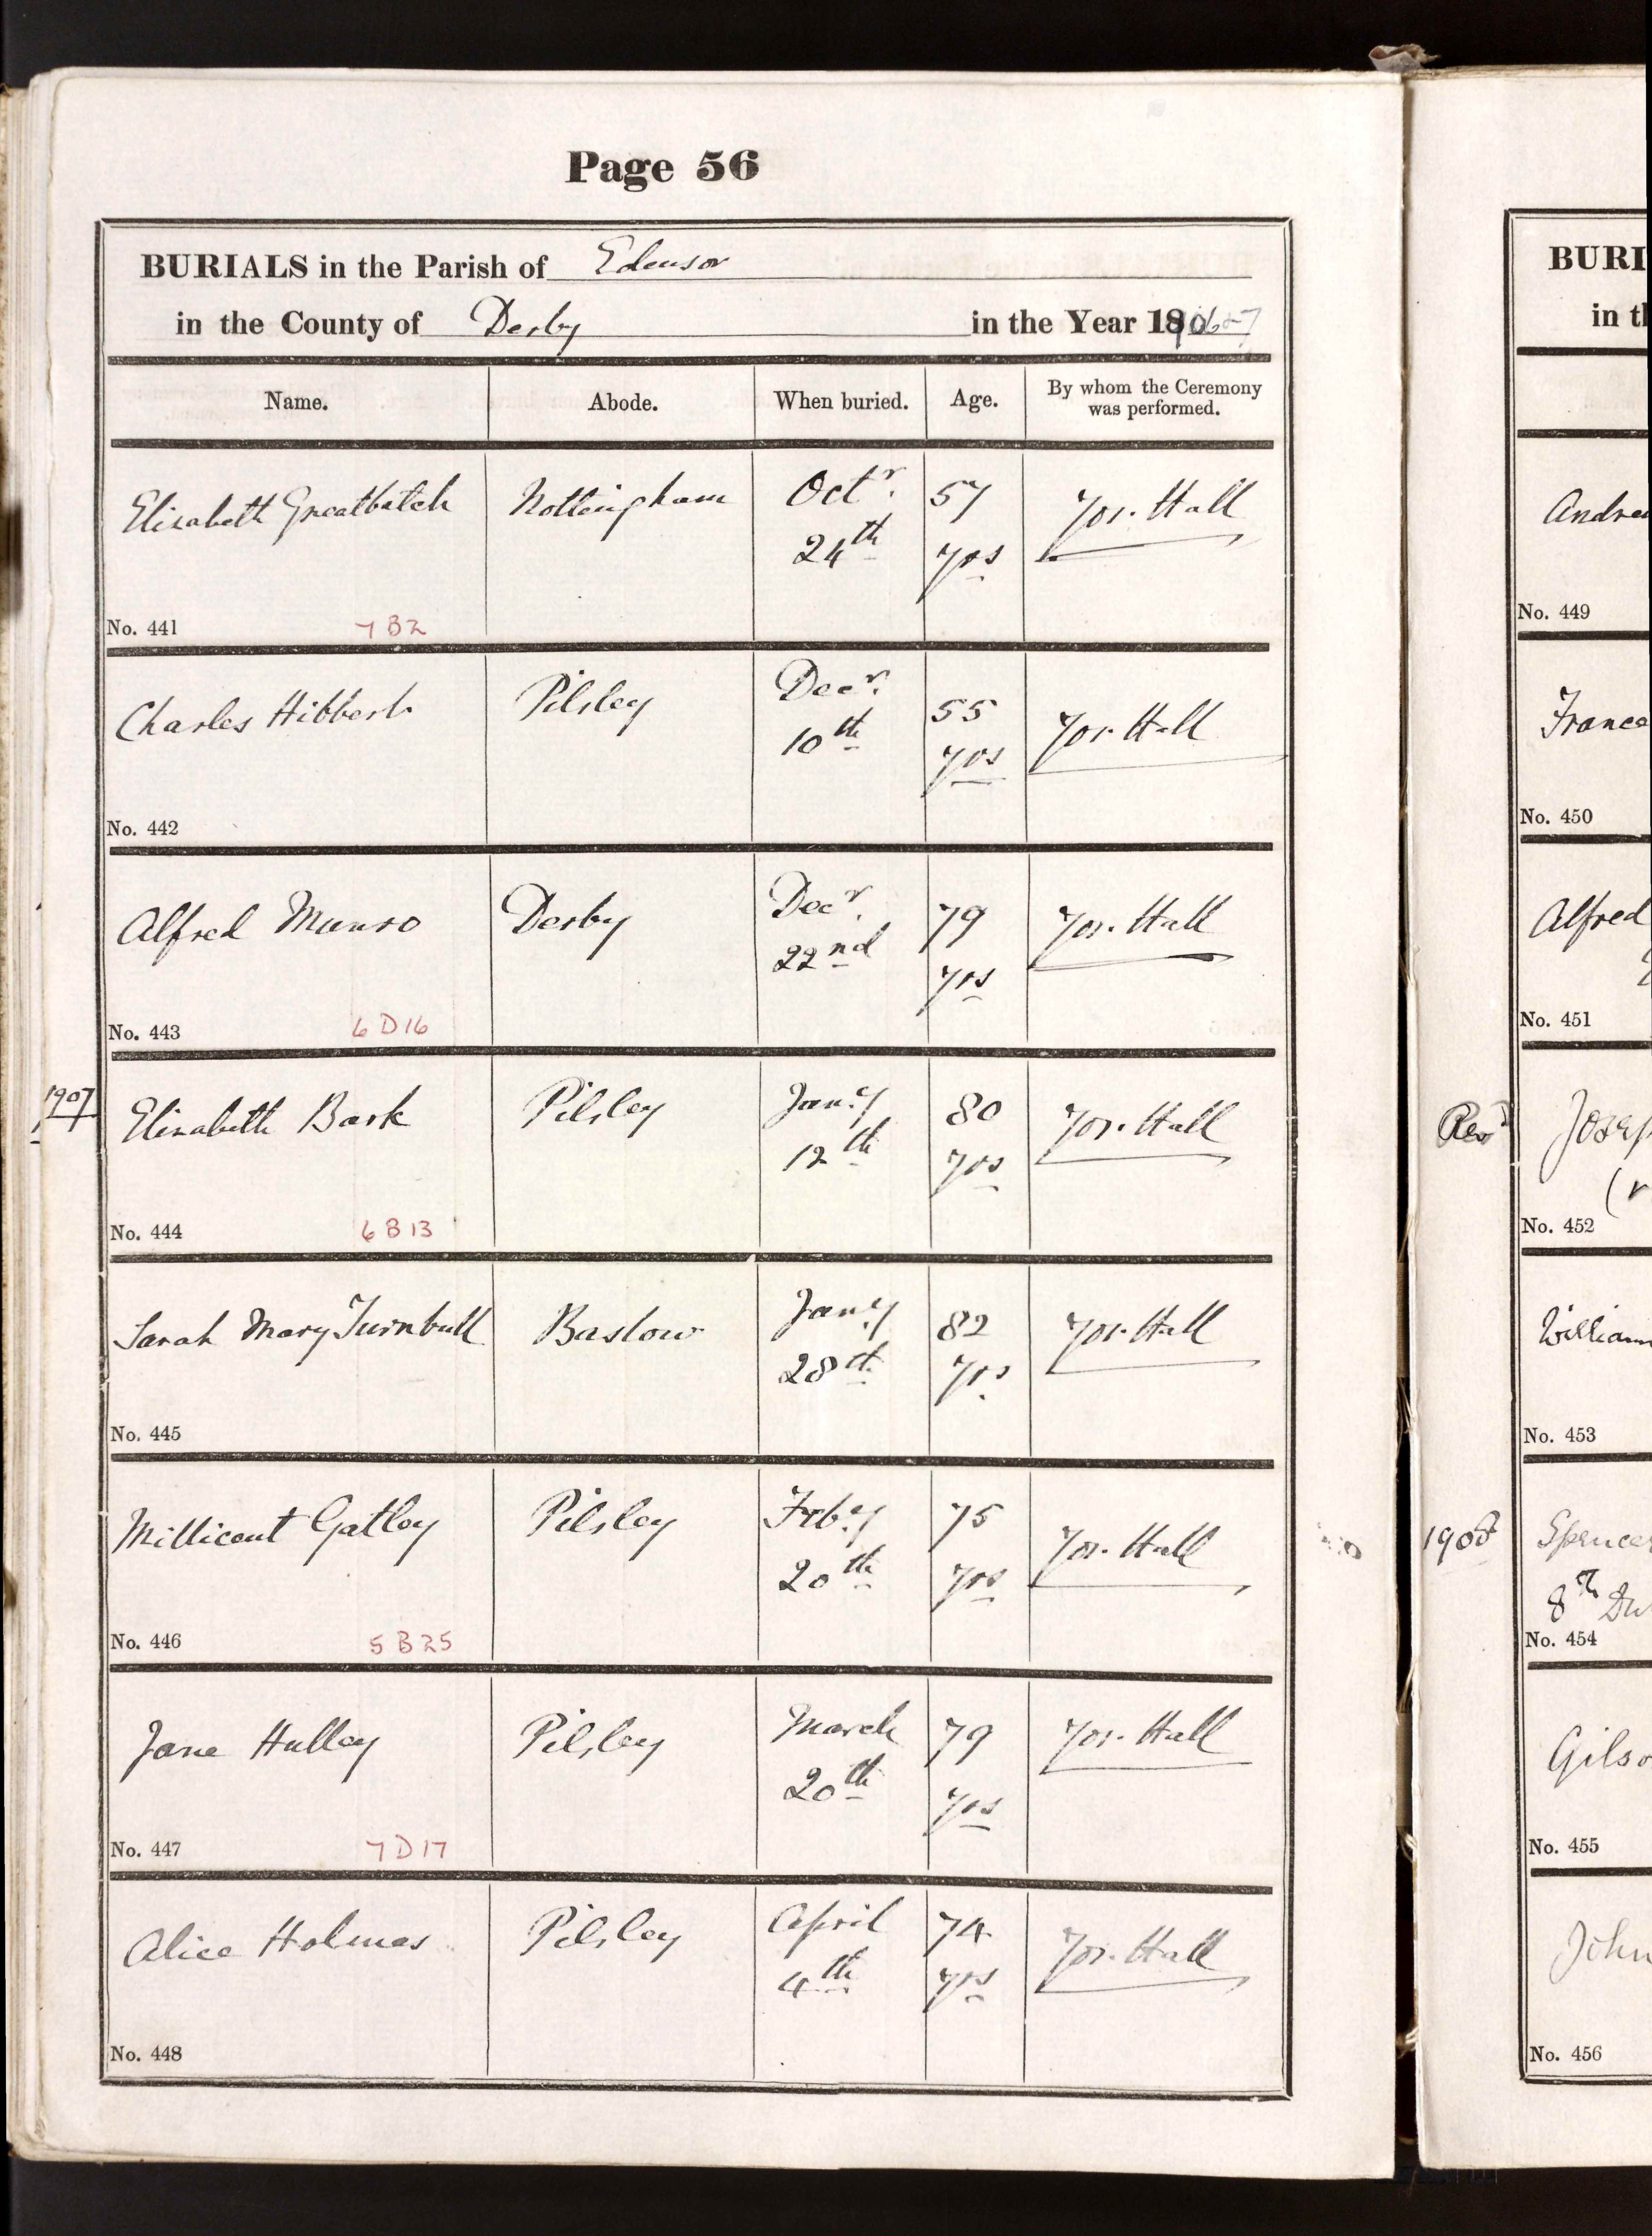 Page 56
BURIALS in the Parish of Edensor
in the County of Derby in the Year 1906-7
Name. Abode. When buried. Age. By whom the Ceremony was performed.
Elisabeth Greatbatch Nottingham Octr. 57 Jos. Hall
24th yrs
No. 441 7 B2
Charles Hibbert Pilsley Decr. 55 Jos. Hall
10th yrs
No. 442
Alfred Munro Derby Decr. 79 Jos. Hall
22nd yrs
No. 443 6 D16
1907 Elisabeth Bark Pilsley Jany. 80 Jos. Hall
12th yrs
No. 444 6 B 13
Sarah Mary Turnbull Baslow Jany. 82 Jos. Hall
28th yrs
No. 445
Millicent Gatley Pilsley Feby. 75 Jos. Hall
20th yrs
No. 446 5 B 25
Jane Hulley Pilsley March 79 Jos. Hall
20th yrs
No. 447 7 D 17
Alice Holmes Pilsley April 74 Jos. Hall
4th yrs
No. 448
BURI
in t
Andre
No. 449
France
No. 450
Alfred
No. 451
Revd Josep
(v
No. 452
William
No. 453
1908 Spencer
8th Du
No. 454
Gilso
No. 455
John
No. 456